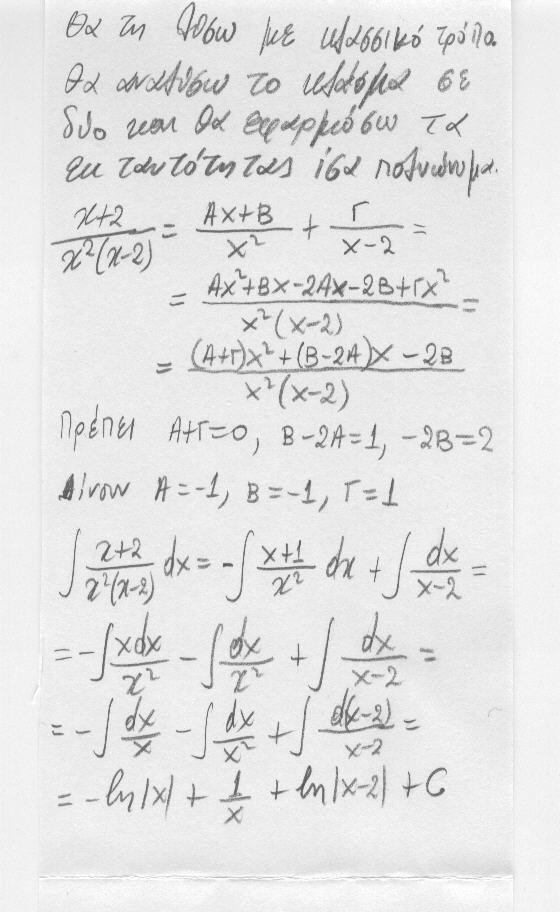 Θα τη λύσω με κλασσικό τρόπο.
Θα αναλύσω το κλάσμα σε
δύο και θα εφαρμόσω τα
εκ ταυτότητας ίσα πολυώνυμα.
x+2/x²(x-2) = Ax+B/x² + Γ/x-2 =
= Ax²+Bx-2Ax-2B+Γx²/x²(x-2) =
= (A+Γ)x²+(B-2A)x-2B/x²(x-2)
Πρέπει A+Γ=0, B-2A=1, -2B=2
Δίνουν A=-1, B=-1, Γ=1
∫ x+2/x²(x-2) dx = -∫ x+1/x² dx + ∫ dx/x-2 =
= -∫ xdx/x² - ∫ dx/x² + ∫ dx/x-2 =
= -∫ dx/x - ∫ dx/x² + ∫ d(x-2)/x-2 =
= -ln|x| + 1/x + ln|x-2| + C